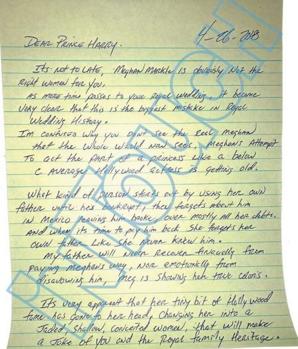 4-26-2018
DEAR PRINCE HARRY,
It's not to late, Meghan Markle is obviously not the
right woman for you.
As more time passes to your royal wedding, it became
very clear that this is the biggest mistake in Royal
Wedding History.
I'm confused why you don't see the real Meghan
that the whole world now sees. Meghan's attempt
to act the part of a princess like a below
C average Hollywood actress is getting old.
What kind of person starts out by using her own
father until he's bankrupt, then forgets about him
in Mexico leaving him broke, over mostly all her debts.
And when it's time to pay him back she forgets her
own father like she never knew him.
My father will never recover financially from
paying Meghan's way, nor emotionally from
disavowing him. Meg is showing her true colors.
It's very apparent that her tiny bit of Hollywood
fame has gone to her head. Changing her into a
Jaded, Shallow, conceited woman, that will make
a Joke of you and the Royal family Heritage.